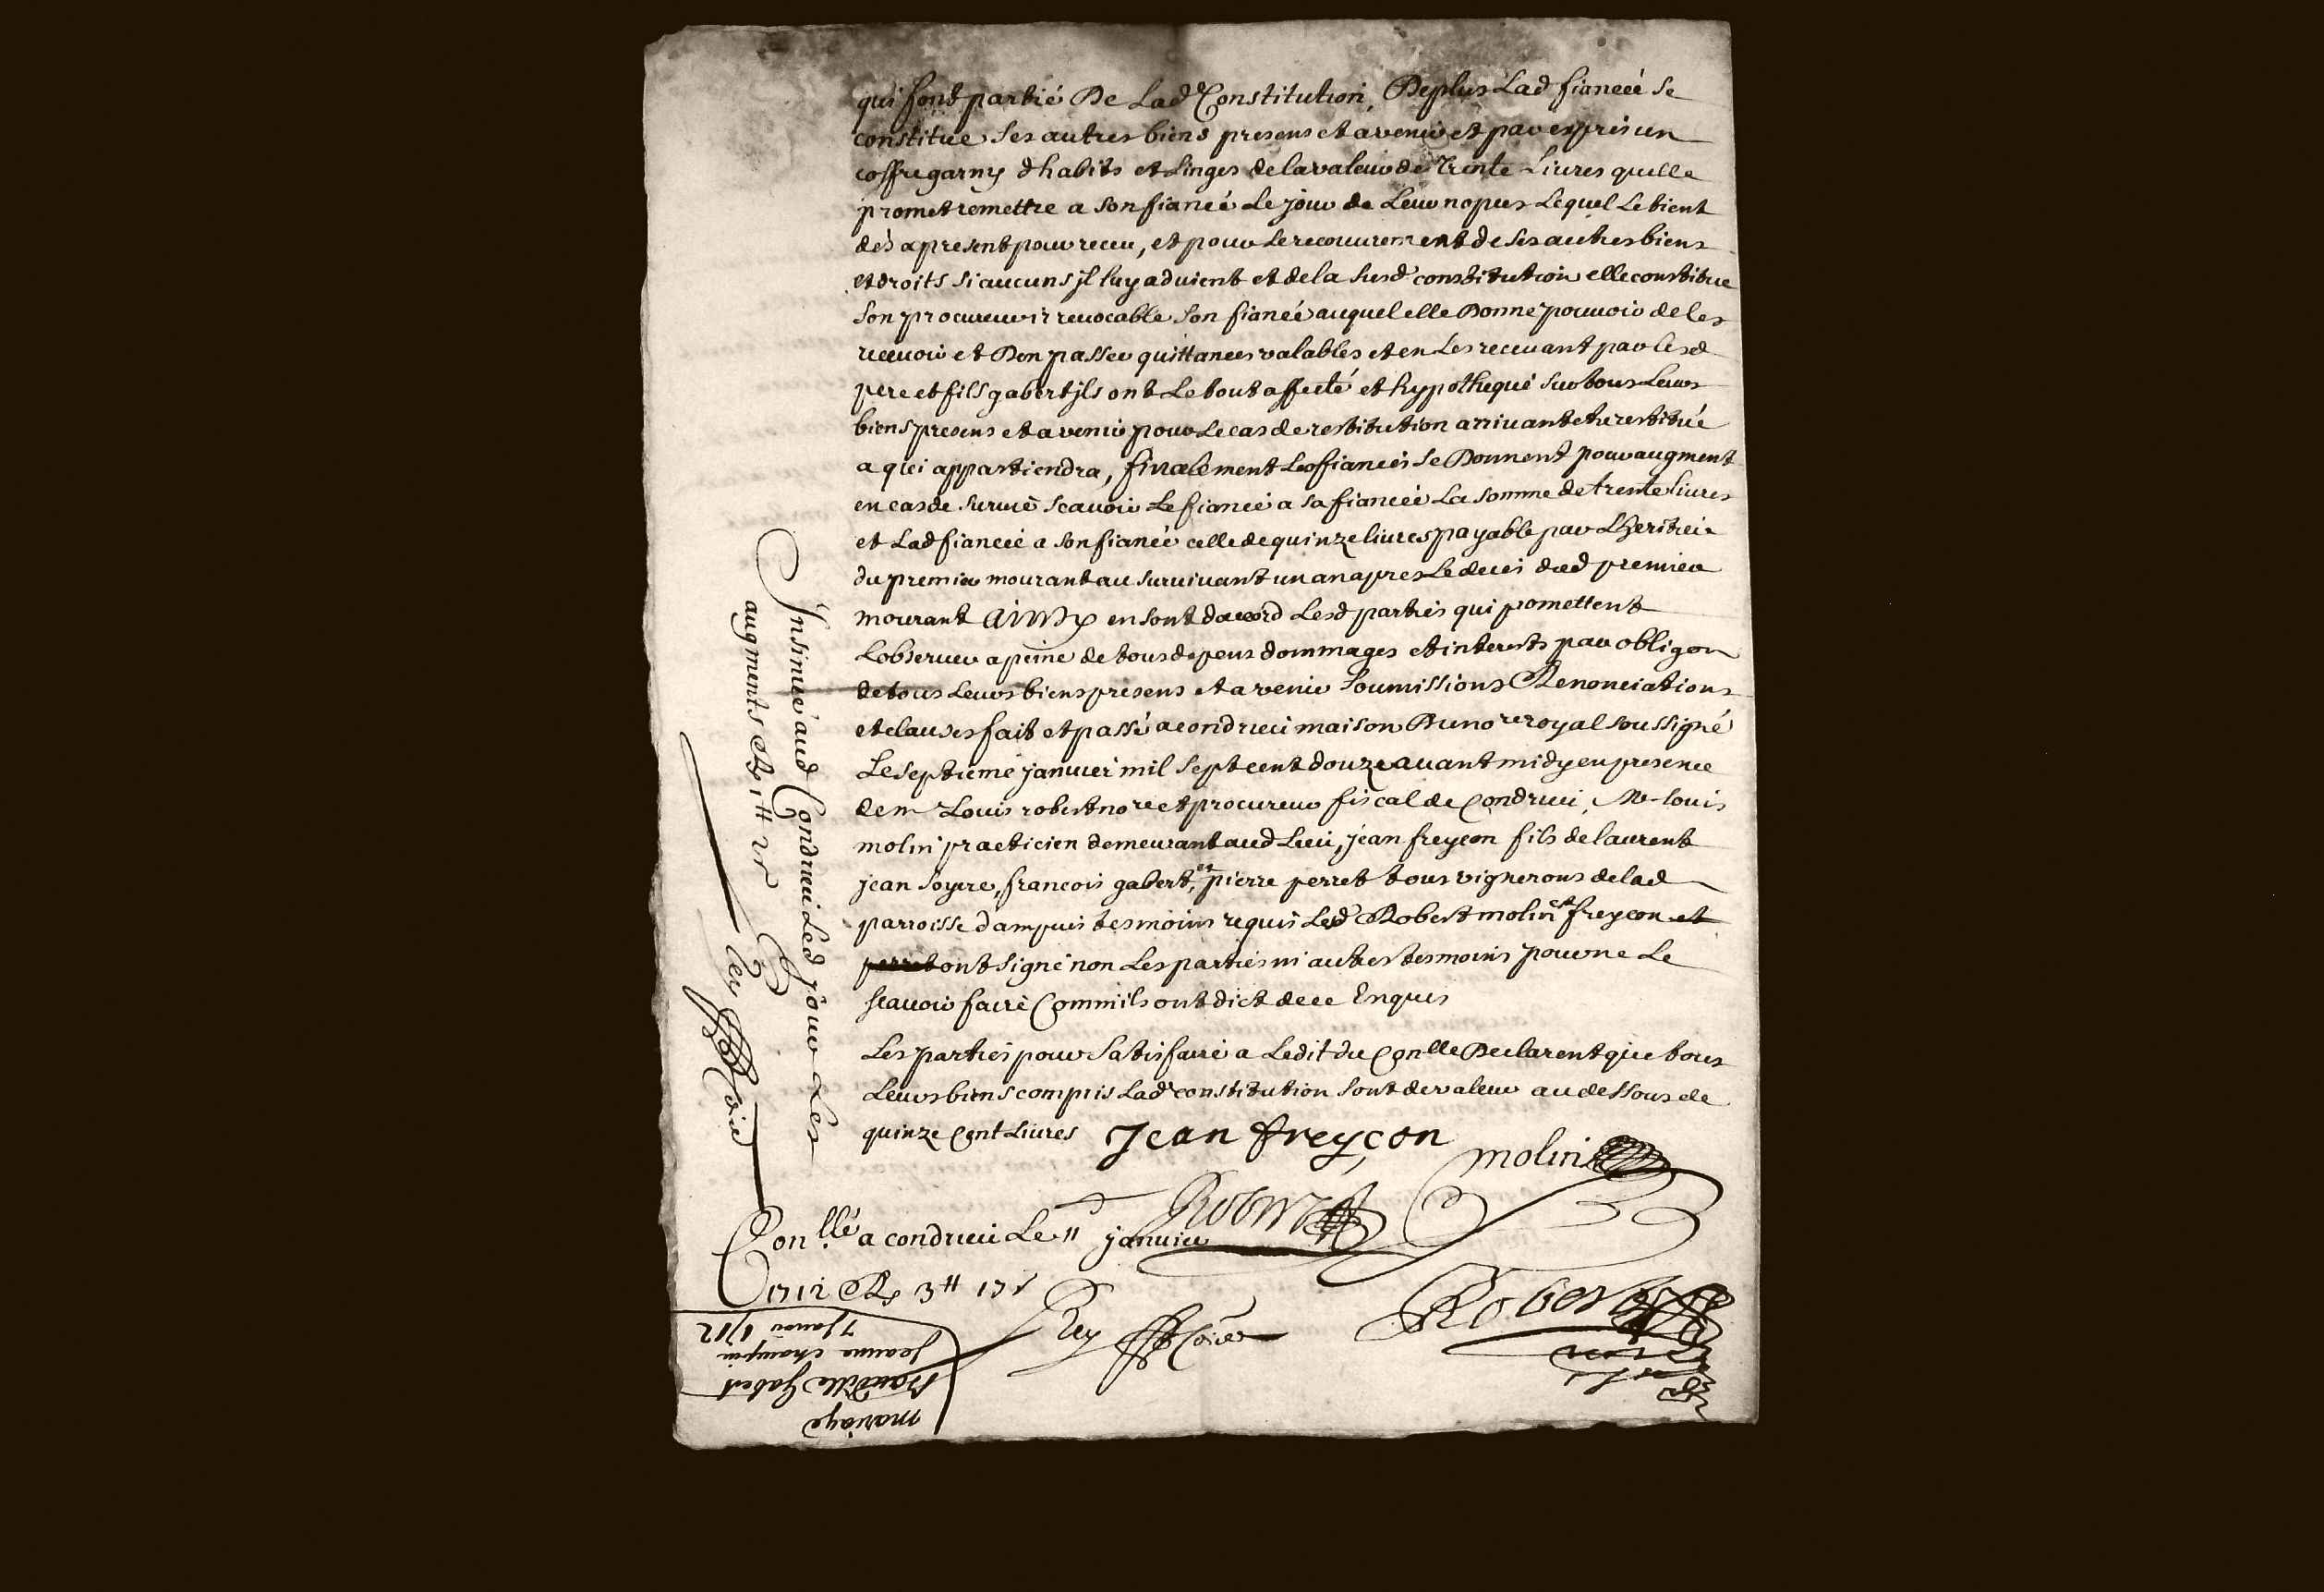 qui font partie De Lad Constitution, Deplus Lad fiancée se
constitue ses autres biens presens et avenir et par expres un
coffre garny dhabits et Linges de la valeur de trente Livres quelle
promet remettre a son fiancé Le jour de Leur nopces Lequel Le tient
dés a present pour receu, et pour Le recouurement de ses autres biens
et droits si aucuns jl luy aduient et de la susd constitution elle constitue
son procureur irreuocable son fiancé auquel elle Donne pouuoir de les
receuoir et Den passer quittances valables et en Les receuant par Lesd
pere et fils gabert jls ont Le tout affecté et hypothequé sur tous Leurs
biens presens et avenir pour Le cas de restitution arriuant etre restitué
a qui appartiendra, finalement Les fiancés se Donnent pour augment
en cas de suruie scauoir Le fiancé a sa fiancée La somme de trente liures
et Lad fiancée a son fiancé celle de quinze liures payable par Lheritier
du premier mourant au suruiuant un an apres Le deces dud premier
mourant ainsy en sont dacord Lesd parties qui promettent
Lobseruer a peine de tous depens dommages et interests par obligon
de tous Leurs biens presens et avenir soumissions Renonciations
et clauses fait et passé a condrieu maison Du nore royal soussigné
Le septieme januier mil sept cent douze auant midy en presence
de mr Louis robert nore et procureur fiscal de Condrieu, Me louis
molin practicien demeurant aud Lieu, jean freyçon fils de laurent
jean soyere, francois gabert, et pierre perret tous vignerons de lad
parroisse dampuis tesmoins requis Lesd Robert molin et freyçon et
perret ont signé non Les parties ni autres tesmoins pour ne Le
scauoir faire Comm ils ont dict de ce Enquis
Les parties pour satisfaire a Ledit du Conlle Declarent que tous
Leurs biens compris Lad constitution sont de valeur au dessous de
quinze Cent Liures
Jean freyçon
molin
Robert
Conllé a condrieu Le 11 januier
1712 Rs 3tt 17s
Rey
Robert
Insinué aud Condrieu Led jour Les
augments Rs 1tt
Rey
mariage
Gabert
Jeanne champin
7 janvr 1712